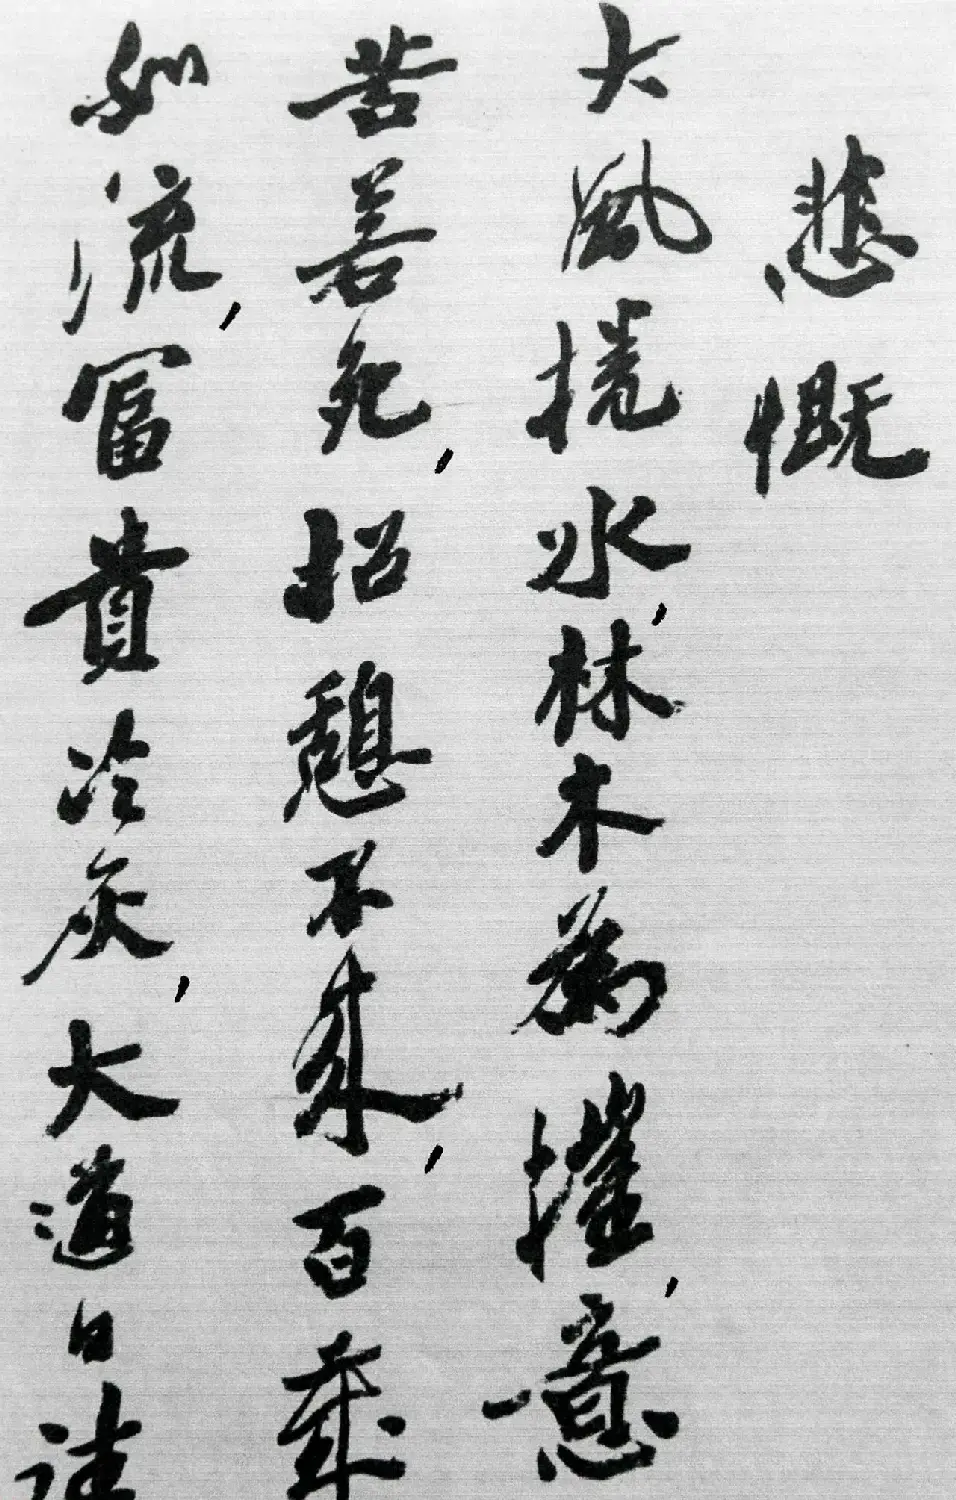 悲慨
大風捲水，林木為摧，意
苦若死，招憩不來，百歲
如流，富貴冷灰，大道日